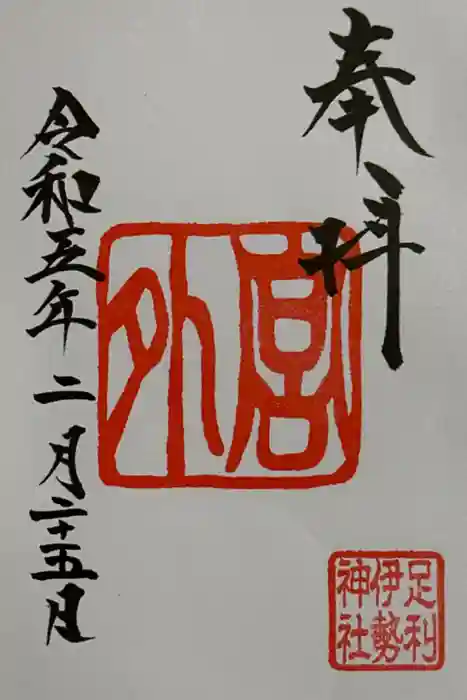 奉拝
外宮
足利
伊勢
神社
令和五年二月二十五日